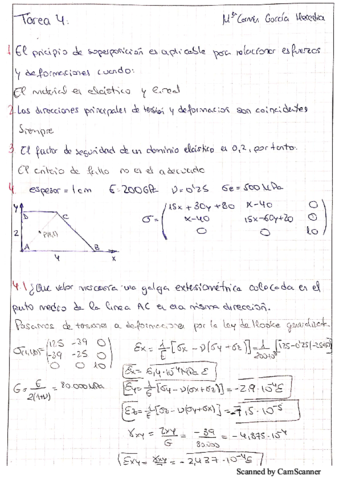 Tarea 4.
Mª Carmen García Heredia
1. El principio de superposición es aplicable para relacionar esfuerzos
y deformaciones cuando:
El material es elástico y lineal
2. Las direcciones principales de tensión y deformación son coincidentes
Siempre
3. El factor de seguridad de un dominio elástico es 0,2, por tanto:
El criterio de fallo no es el adecuado
4. espesor = 1 cm E: 200 GPa ν = 0'25 σe = 500 MPa
σ = ( 15x + 30y + 80 x - 40 0
x - 40 15x - 60y + 20 0
0 0 10 )
y D C
2 P(1,1)
A B
4 x
4.1 ¿Que valor mediría una galga extensiométrica colocada en el
punto medio de la línea AC en esa misma dirección.
Pasamos de tensiones a deformaciones por la ley de Hooke generalizada.
( 125 -39 0
-39 -25 0
0 0 10 )
εx = 1/E [σx - ν(σy + σz)] =
εx = 6,4·10⁻⁴
G = E / 2(1+ν) = 80.000 MPa
εy = 1/E [σy - ν(σx + σz)] =
εz = 1/E [σz - ν(σy + σx)] = -7,5·10⁻⁵
γxy = τxy / G = -39 / 80000 = -4,875·10⁻⁴
εxy = γxy / 2 = -2,437·10⁻⁴
Scanned by CamScanner